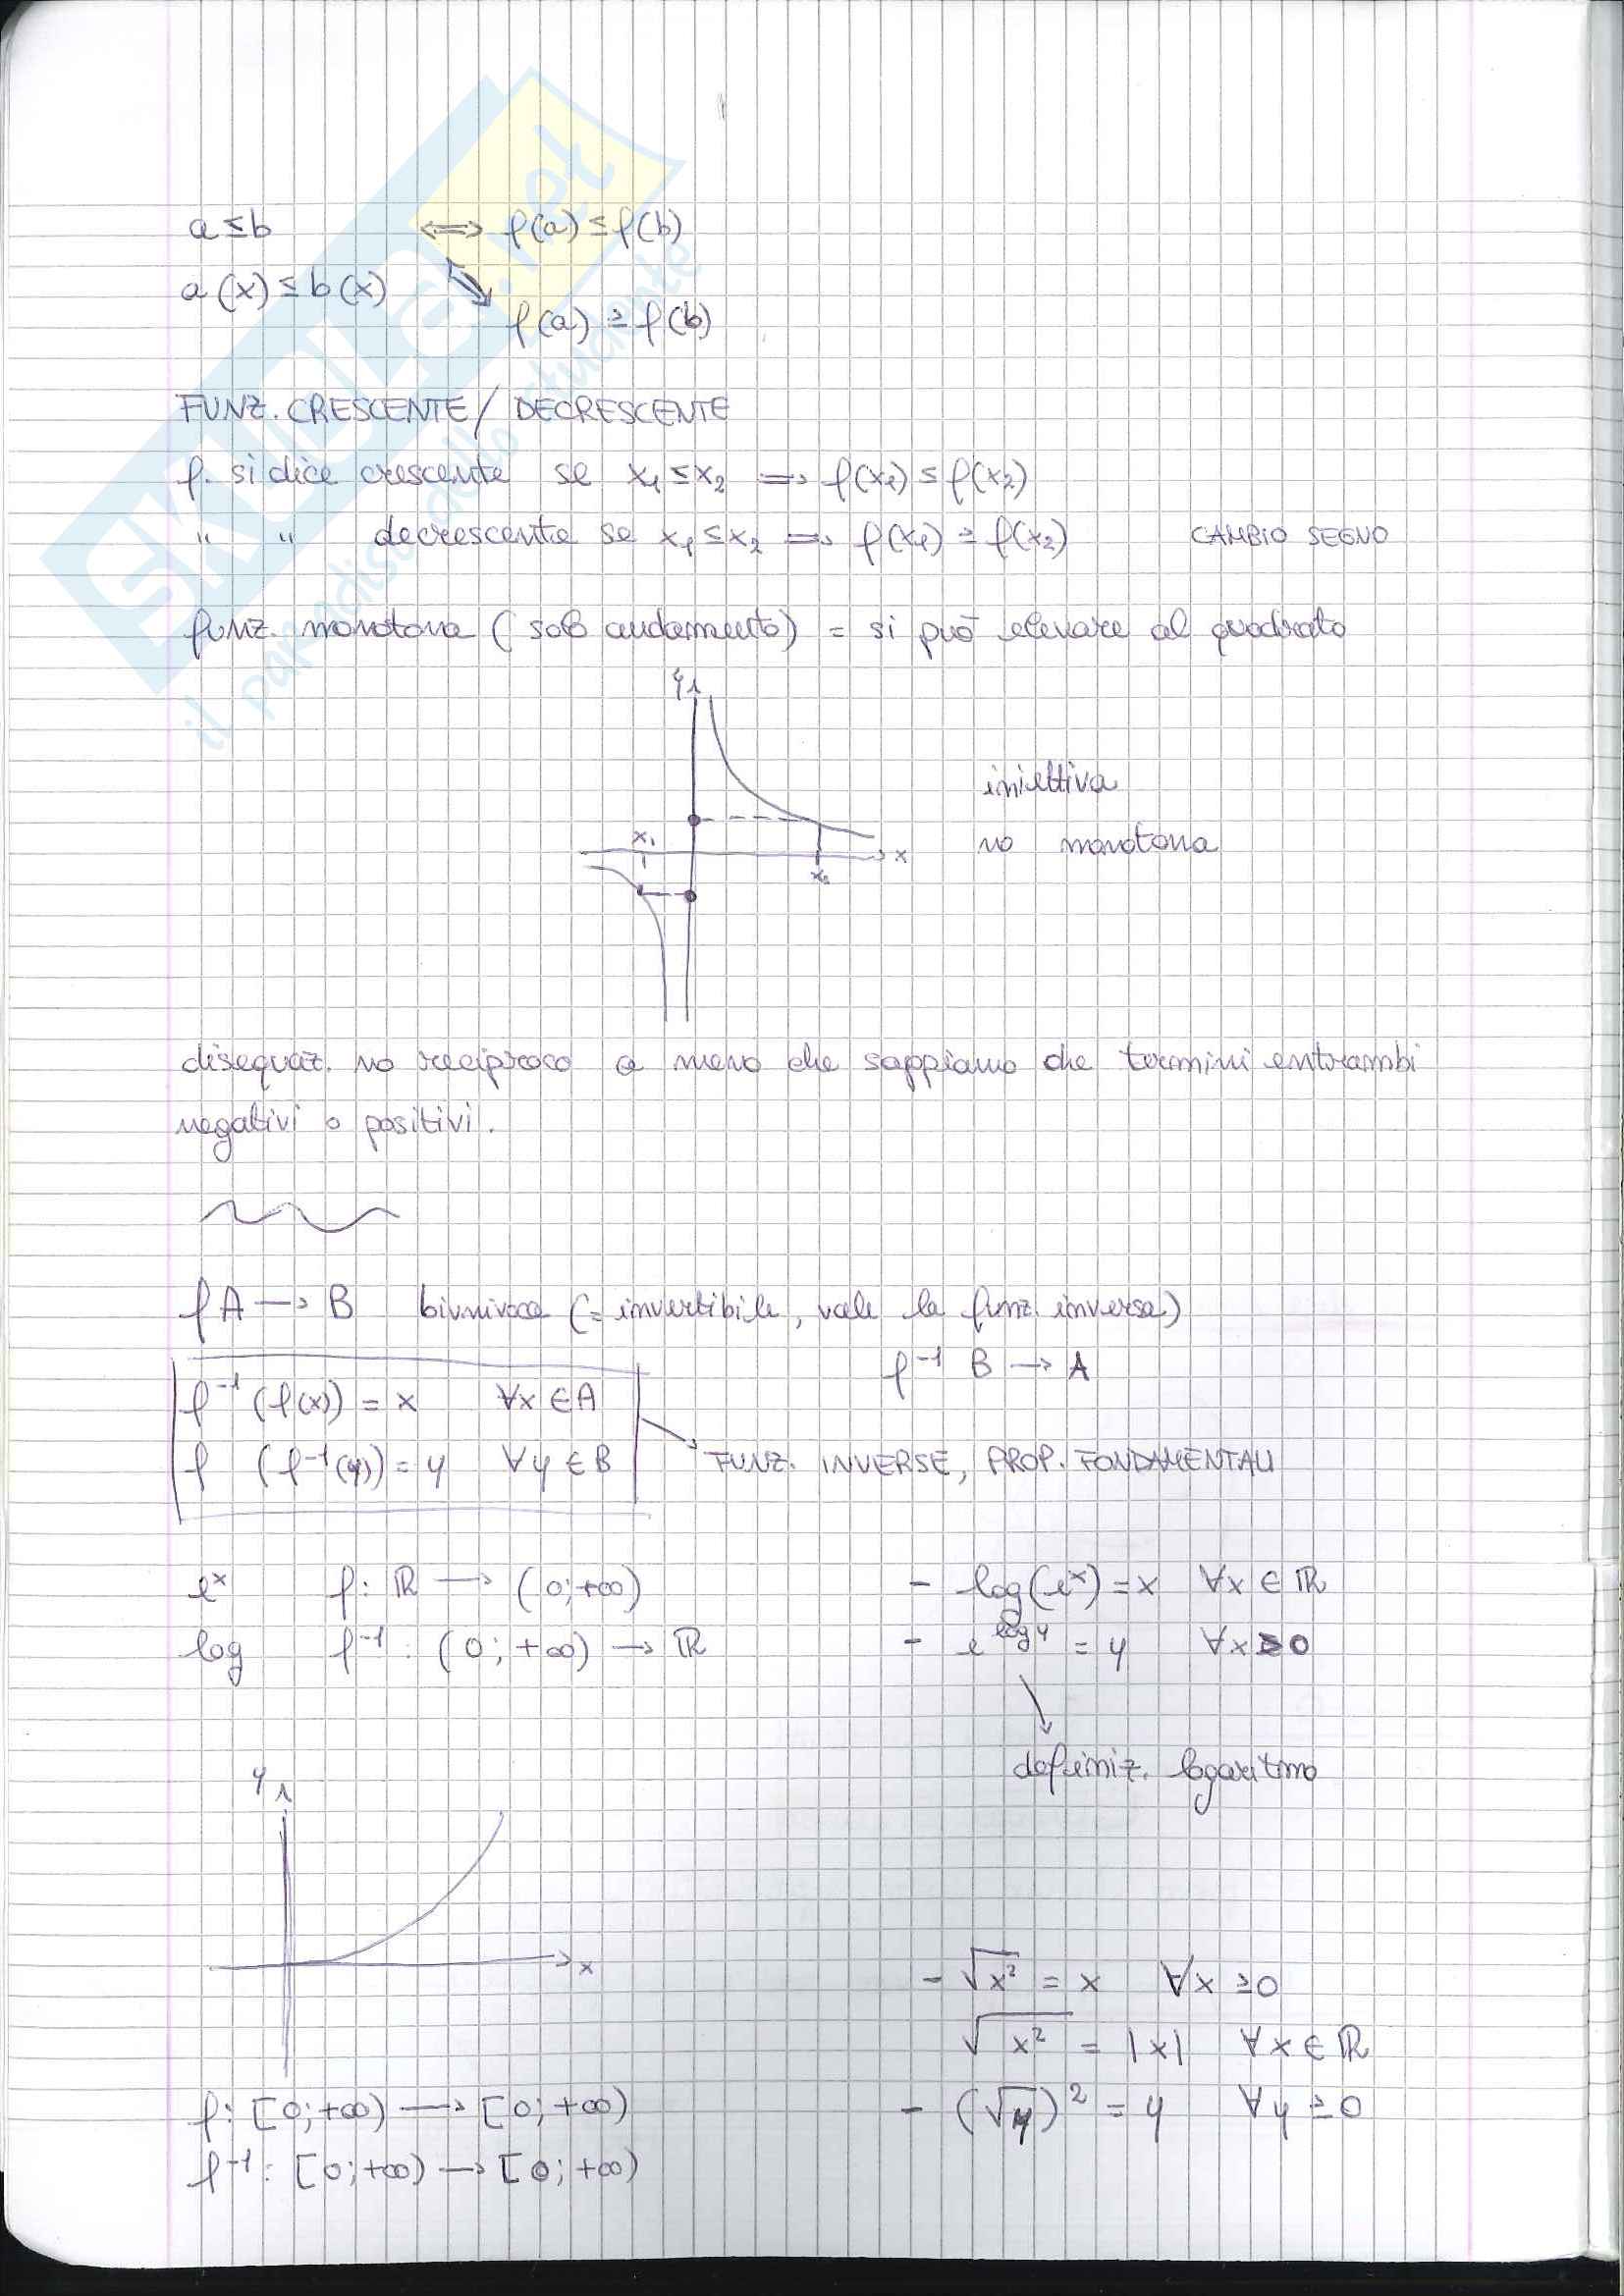 SKUOLA.net
il paradiso dello studente
a ≤ b ⟺ f(a) ≤ f(b)
a(x) ≤ b(x)
f(a) ≥ f(b)
FUNZ. CRESCENTE / DECRESCENTE
f. si dice crescente se x₁ ≤ x₂ ⟹ f(x₁) ≤ f(x₂)
" " decrescente se x₁ ≤ x₂ ⟹ f(x₁) ≥ f(x₂) CAMBIO SEGNO
funz. monotona (solo andamento) = si può elevare al quadrato
y
iniettiva
x₁
x
no monotona
x₂
disequaz. no reciproco a meno che sappiamo che termini entrambi
negativi o positivi.
f A → B biunivoca (= invertibile, vale la funz. inversa)
f⁻¹ B → A
f⁻¹ (f(x)) = x ∀x ∈ A
f (f⁻¹(y)) = y ∀y ∈ B
FUNZ. INVERSE, PROP. FONDAMENTALI
eˣ f: ℝ → (0; +∞) - log(eˣ) = x ∀x ∈ ℝ
log f⁻¹: (0; +∞) → ℝ - e^log y = y ∀x > 0
definiz. logaritmo
y
x
- √x² = x ∀x ≥ 0
√x² = |x| ∀x ∈ ℝ
f: [0; +∞) → [0; +∞) - (√y)² = y ∀y ≥ 0
f⁻¹: [0; +∞) → [0; +∞)